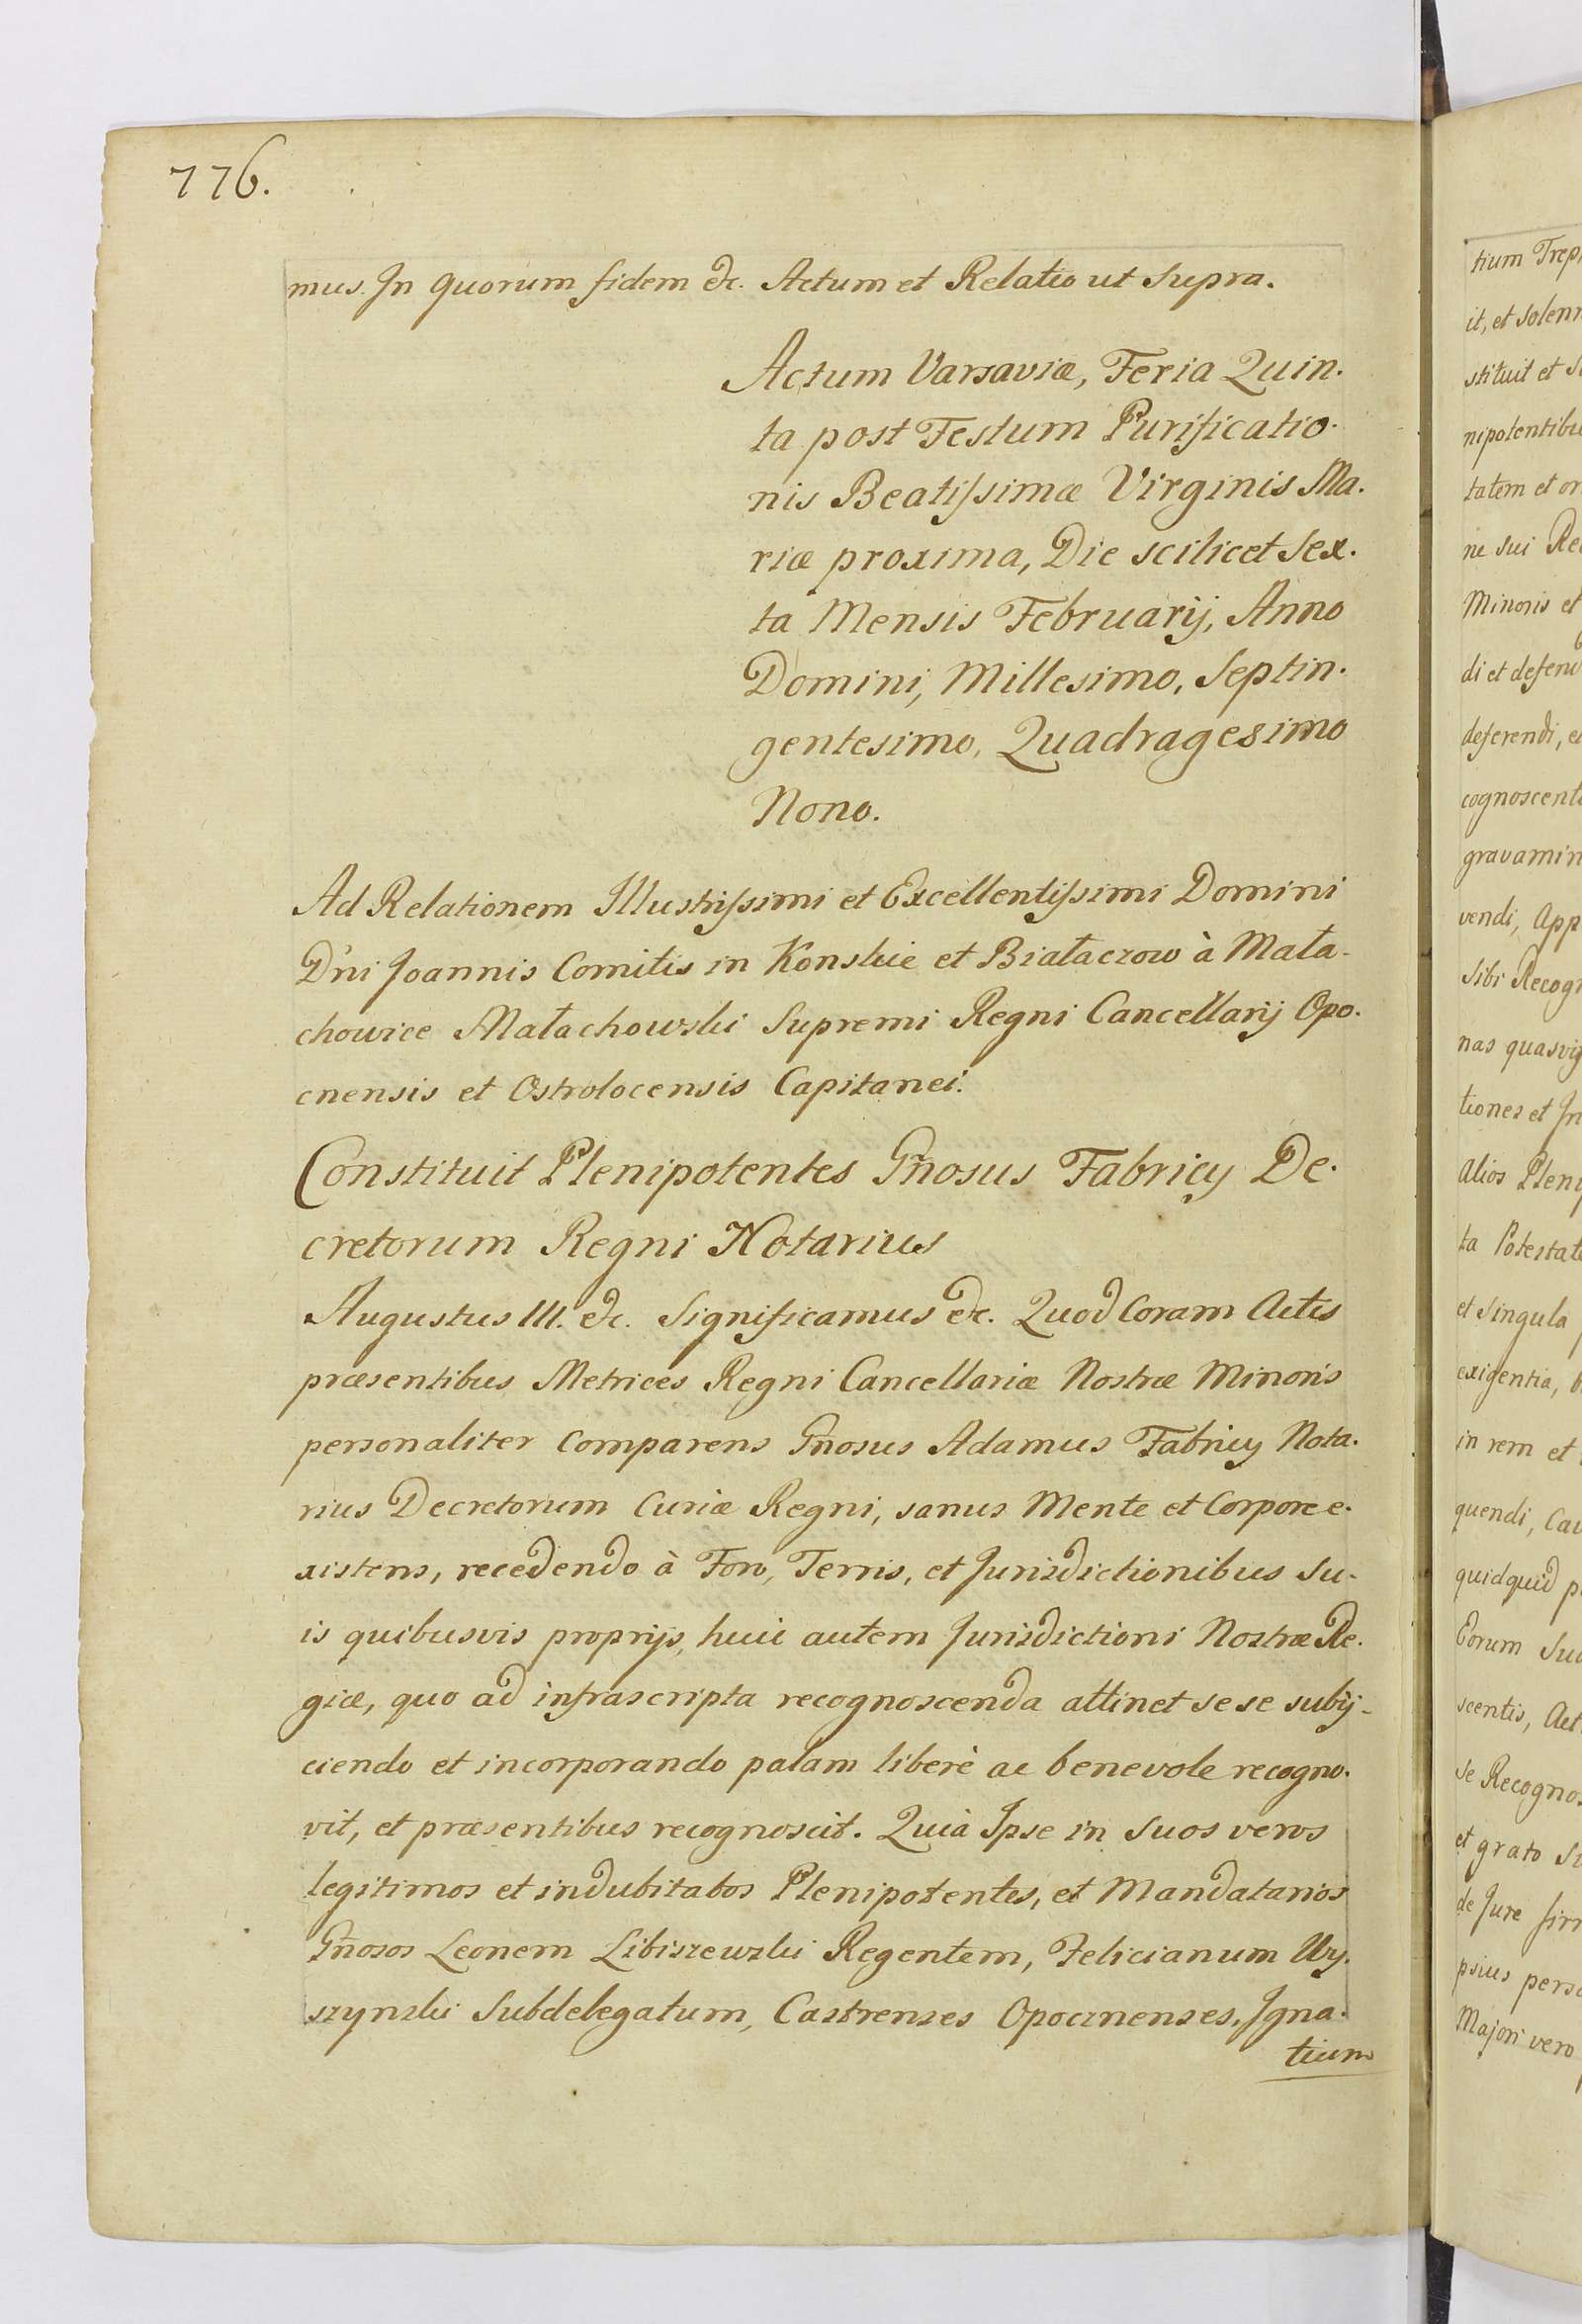 776.
mus. In quorum fidem &c. Actum et Relatio ut Supra.
Actum Varsaviæ, Feria Quin.
ta post Festum Purificatio.
nis Beatissimæ Virginis Ma.
riæ proxima, Die scilicet Sex.
ta Mensis Februarij, Anno
Domini, Millesimo, Septin.
gentesimo, Quadragesimo
Nono.
Ad Relationem Illustrissimi et Excellentissimi Domini
D'ni Joannis Comitis in Konskie et Białaczow à Mała.
chowice Małachowski Supremi Regni Cancellarij Opo.
cnensis et Ostrolocensis Capitanei.
Constituit Plenipotentes Gñosus Fabricy De.
cretorum Regni Notarius
Augustus III. &c. Significamus &c. Quod Coram Actis
præsentibus Metrices Regni Cancellariæ Nostræ Minoris
personaliter Comparens Gñosus Adamus Fabricy Nota.
rius Decretorum Curiæ Regni, sanus Mente et Corpore e.
xistens, recedendo à Foro, Terris, et Jurisdictionibus Su.
is quibusvis proprijs, huic autem Jurisdictioni Nostræ Re.
giæ, quo ad infrascripta recognoscenda attinet se se subij-
ciendo et incorporando palam liberè ac benevole recogno.
vit, et præsentibus recognoscit. Quia Ipse in Suos veros
legitimos et indubitatos Plenipotentes, et Mandatarios
Gñosos Leonem Libiszewski Regentem, Felicianum Wy.
szynski Subdelegatum, Castrenses Opocznenses, Igna.
tium
tium Trep
it, et solen
stituit et
nipotentibu
tatem et or
ne sui Re
Minoris et
di et defen
deferendi, e
cognoscent
gravamin
vendi, App
Sibi Recog
nas quasvi
tiones et In
alios Pleni
ta Potestat
et singula
exigentia,
in rem et
quendi, Cau
quidquid p
Eorum Su
scentis, Act
se Recogno
et grato
de Jure fir
psius pers
Majori vero